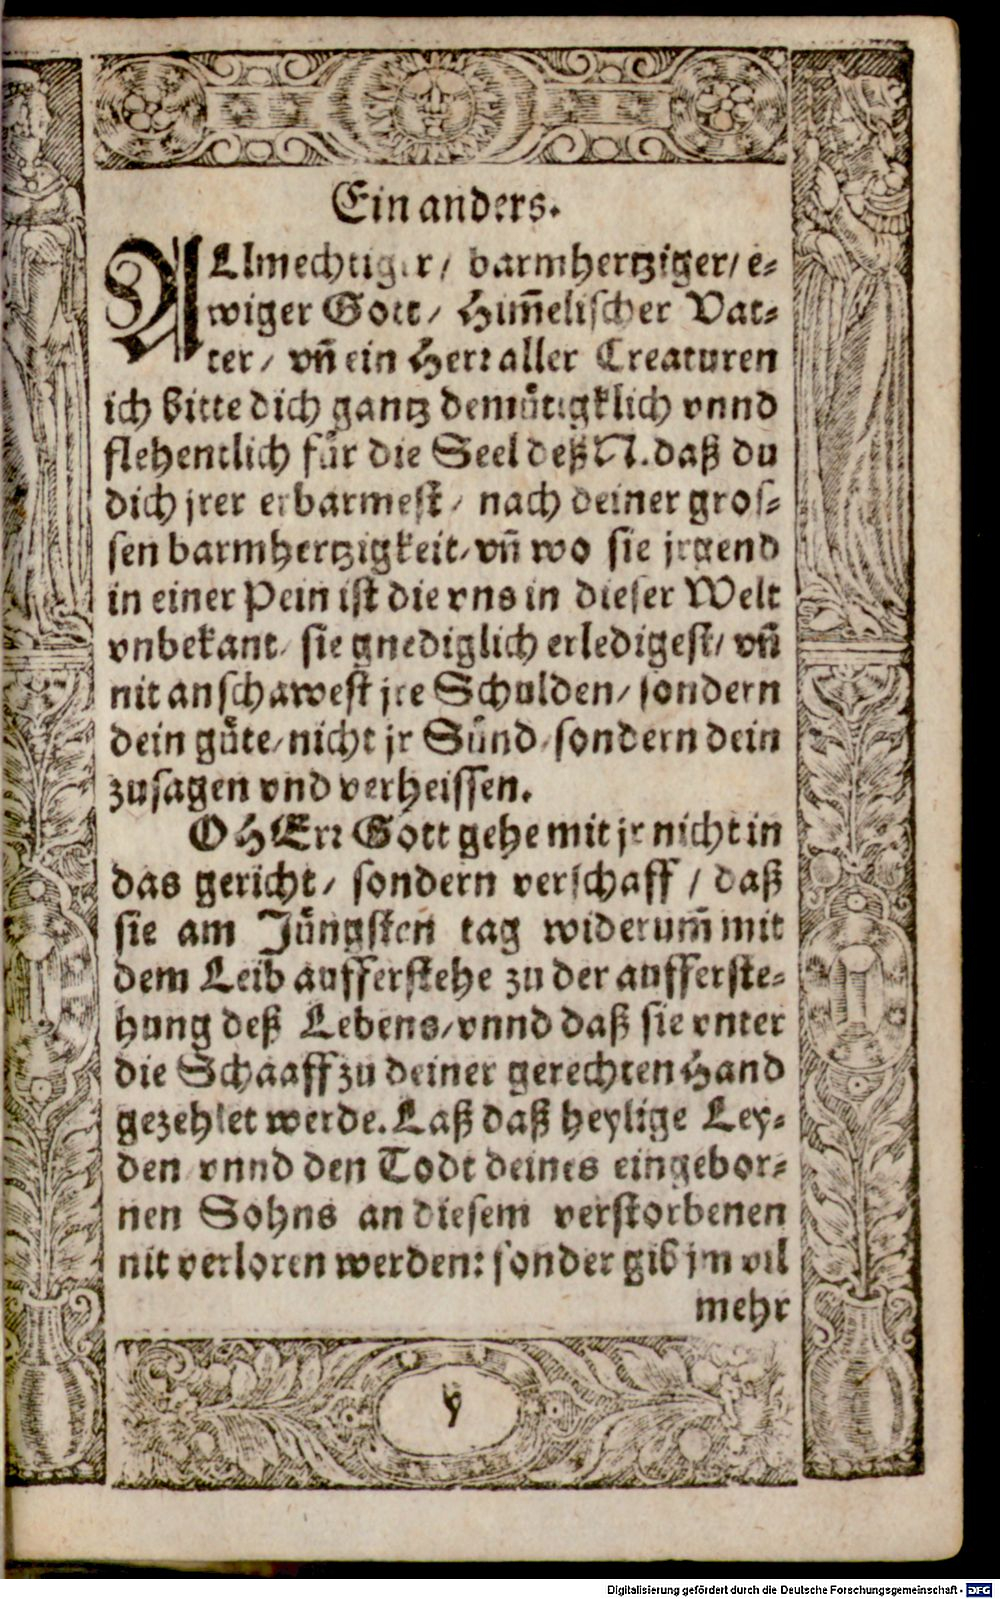 Ein anders.
ALlmechtiger/ barmhertziger/ e-
wiger Gott/ Him̃elischer Vat-
ter/ vñ ein Herr aller Creaturen
ich bitte dich gantz demuͤtigklich vnnd
flehentlich fuͤr die Seel deß N. daß du
dich jrer erbarmest/ nach deiner gros-
sen barmhertzigkeit/ vñ wo sie jrgend
in einer Pein ist die vns in dieser Welt
vnbekant/ sie gnediglich erledigest/ vñ
nit anschawest jre Schulden/ sondern
dein guͤte/ nicht jr Suͤnd/ sondern dein
zusagen vnd verheissen.
O HErr Gott gehe mit jr nicht in
das gericht/ sondern verschaff/ daß
sie am Juͤngsten tag widerum̃ mit
dem Leib aufferstehe zu der aufferste-
hung deß Lebens/ vnnd daß sie vnter
die Schaaff zu deiner gerechten Hand
gezehlet werde. Laß daß heylige Ley-
den vnnd den Todt deines eingebor-
nen Sohns an diesem verstorbenen
nit verloren werden: sonder gib jm vil
mehr
Digitalisierung gefördert durch die Deutsche Forschungsgemeinschaft - DFG